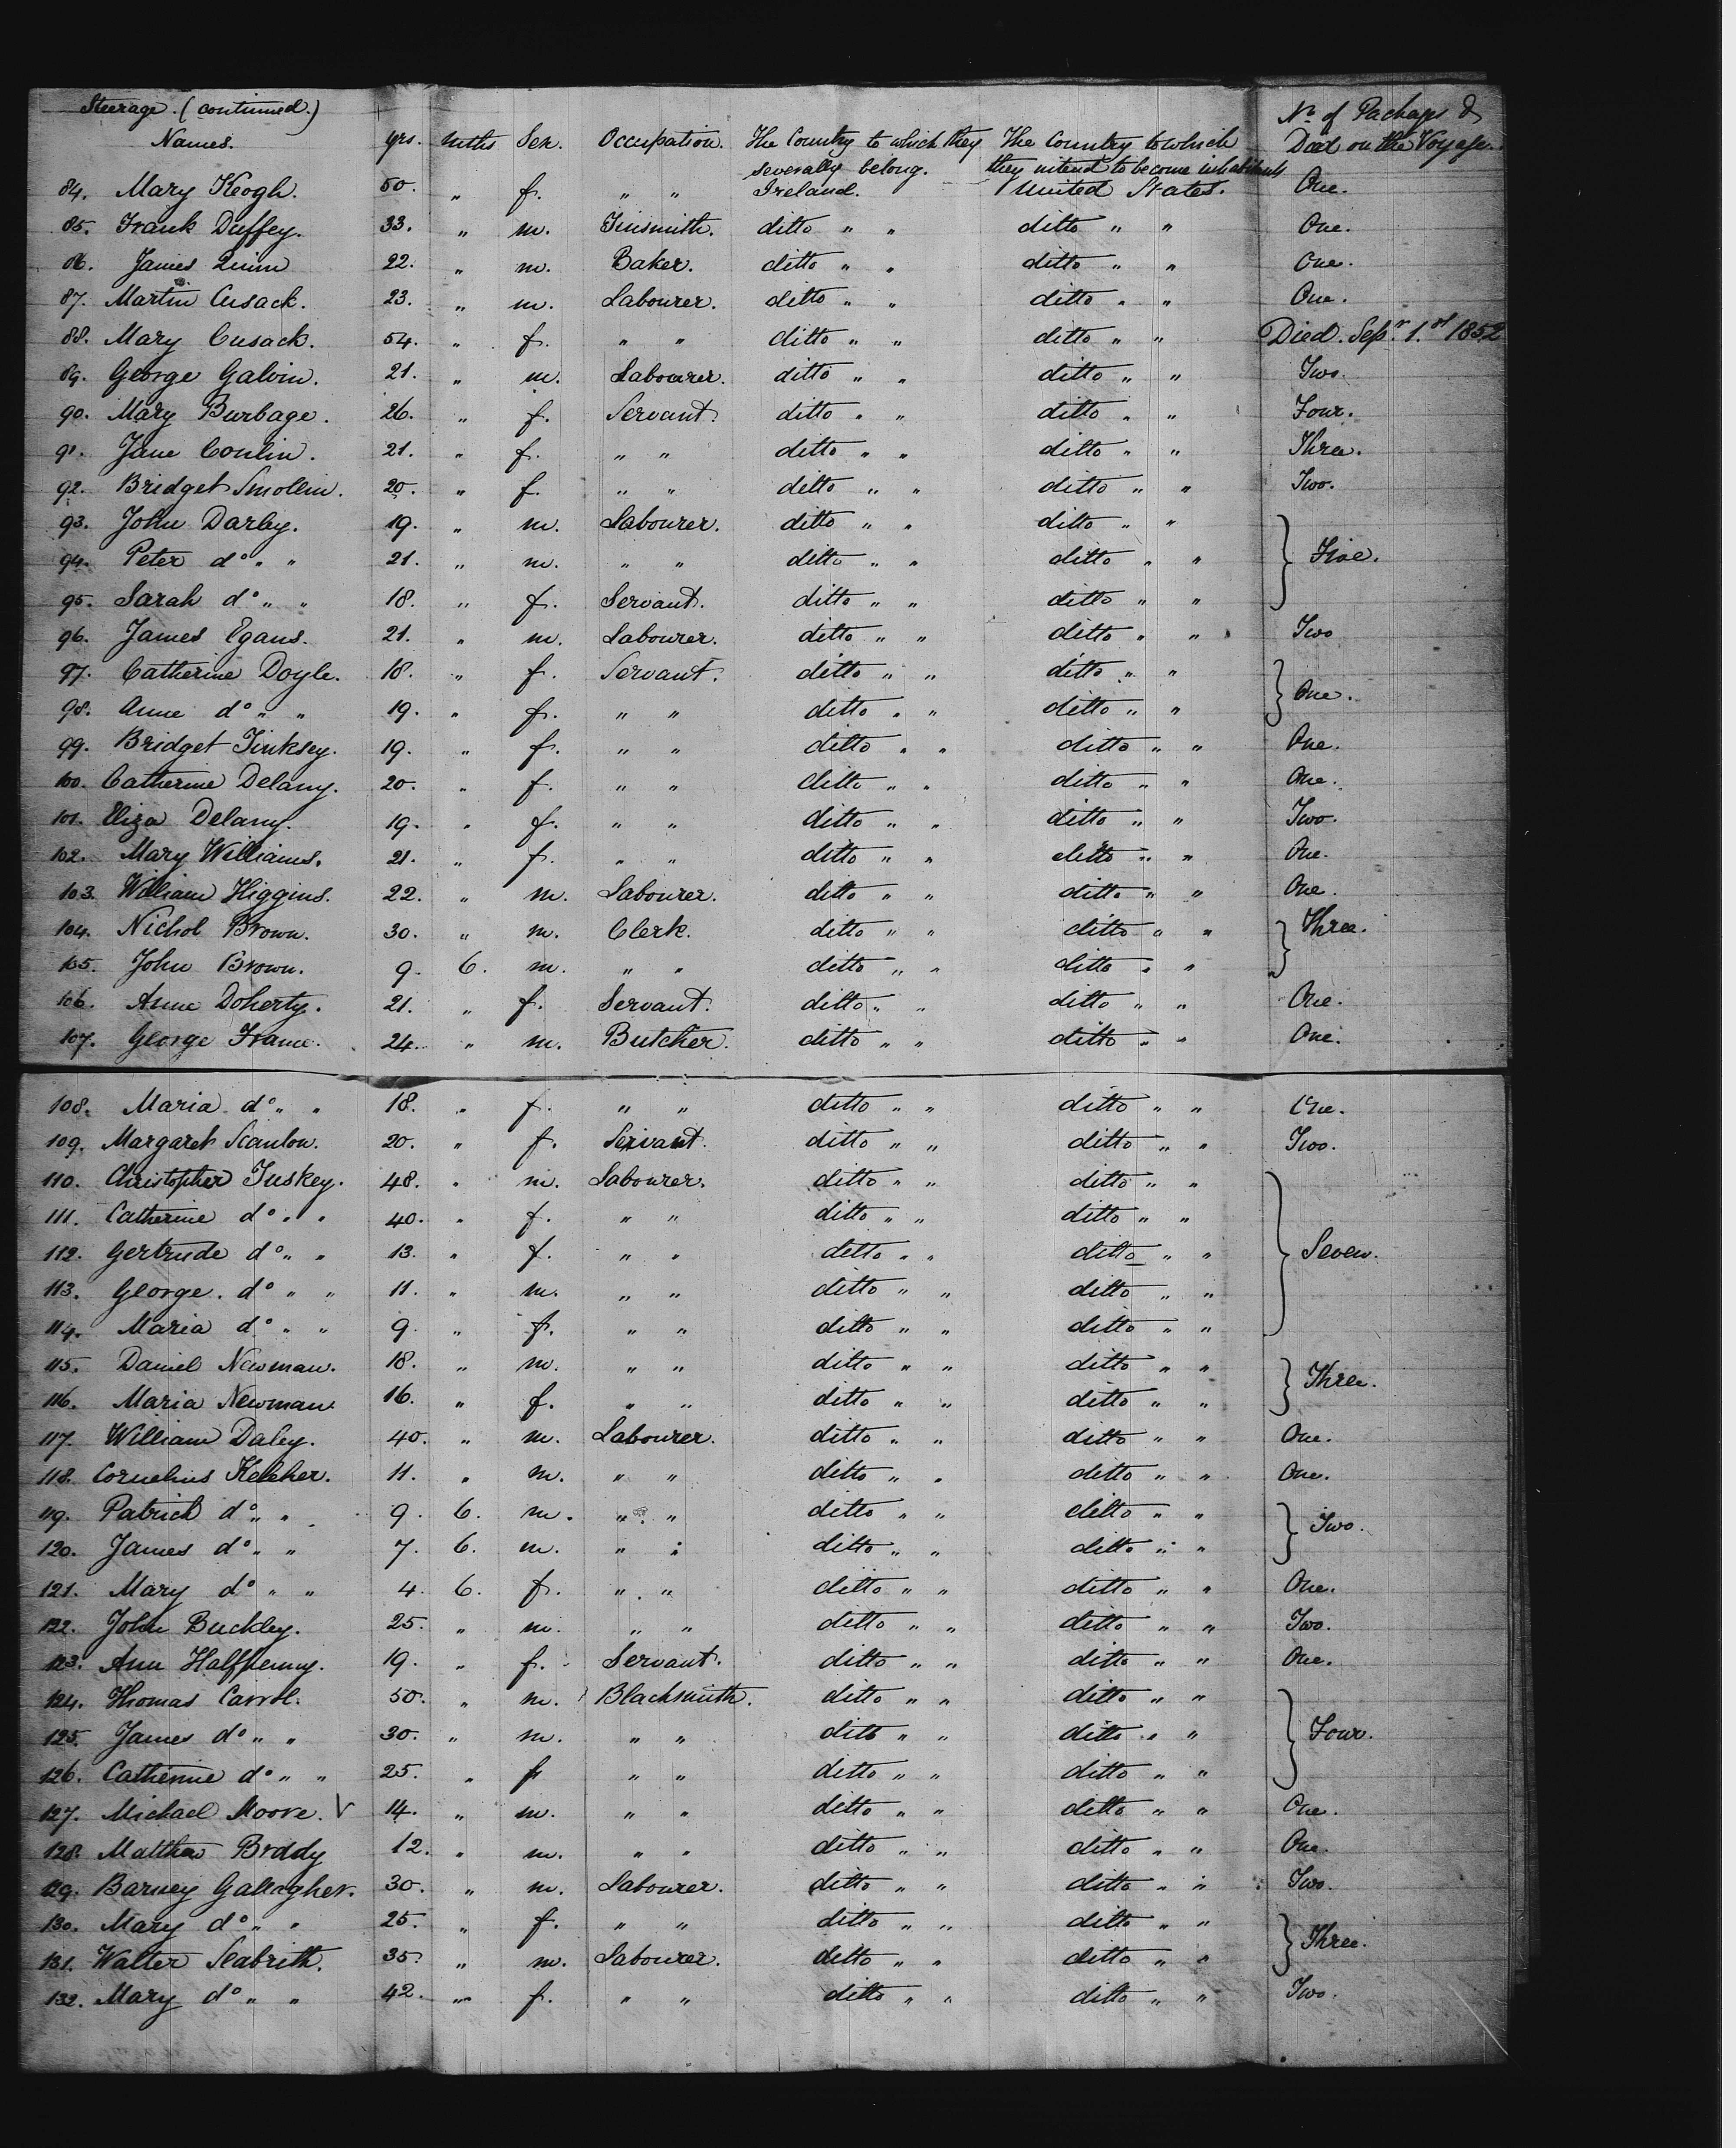 Steerage. (continued.)
Names. yrs. mths Sex. Occupation. The Country to which they severally belong. The Country to which they intend to become inhabitants No. of Packages & Died on the Voyage.
84. Mary Keogh. 50. " f. " " Ireland. United States. One.
85. Frank Duffey. 33. " m. Tinsmith. ditto " " ditto " " One.
86. James Quinn 22. " m. Baker. ditto " " ditto " " One.
87. Martin Cusack. 23. " m. Labourer. ditto " " ditto " " One.
88. Mary Cusack. 54. " f. " " ditto " " ditto " " Died. Sepr. 1.st 1852
89. George Galvin. 21. " m. Labourer. ditto " " ditto " " Two.
90. Mary Burbage. 26. " f. Servant. ditto " " ditto " " Four.
91. Jane Conlin. 21. " f. " " ditto " " ditto " " Three.
92. Bridget Smollin. 20. " f. " " ditto " " ditto " " Two.
93. John Darby. 19. " m. Labourer. ditto " " ditto " "
94. Peter do " " 21. " m. " " ditto " " ditto " " } Five.
95. Sarah do " " 18. " f. Servant. ditto " " ditto " "
96. James Egans. 21. " m. Labourer. ditto " " ditto " " Two
97. Catherine Doyle. 18. " f. Servant. ditto " " ditto " "
98. Anne do " " 19. " f. " " ditto " " ditto " " } One.
99. Bridget Tinksey. 19. " f. " " ditto " " ditto " " One.
100. Catherine Delany. 20. " f. " " ditto " " ditto " " One.
101. Eliza Delany. 19. " f. " " ditto " " ditto " " Two.
102. Mary Williams. 21. " f. " " ditto " " ditto " " One.
103. William Higgins. 22. " m. Labourer. ditto " " ditto " " One.
104. Nichol Brown. 30. " m. Clerk. ditto " " ditto " " } Three.
105. John Brown. 9. 6. m. " " ditto " " ditto " "
106. Anne Doherty. 21. " f. Servant. ditto " " ditto " " One.
107. George Frame. 24. " m. Butcher. ditto " " ditto " " One.
108. Maria do " " 18. " f. " " ditto " " ditto " " One.
109. Margaret Scanlon. 20. " f. Servant. ditto " " ditto " " Two.
110. Christopher Tuskey. 48. " m. Labourer. ditto " " ditto " "
111. Catherine do " " 40. " f. " " ditto " " ditto " "
112. Gertrude do " " 13. " f. " " ditto " " ditto " " } Seven.
113. George. do " " 11. " m. " " ditto " " ditto " "
114. Maria do " " 9. " f. " " ditto " " ditto " "
115. Daniel Newman. 18. " m. " " ditto " " ditto " "
116. Maria Newman. 16. " f. " " ditto " " ditto " " } Three.
117. William Daley. 40. " m. Labourer. ditto " " ditto " " One.
118. Cornelius Keleher. 11. " m. " " ditto " " ditto " " One.
119. Patrick do " " 9. 6. m. " " ditto " " ditto " "
120. James do " " 7. 6. m. " " ditto " " ditto " " } Two.
121. Mary do " " 4. 6. f. " " ditto " " ditto " " One.
122. John Buckley. 25. " m. " " ditto " " ditto " " Two.
123. Ann Halfpenny. 19. " f. Servant. ditto " " ditto " " One.
124. Thomas Carrol. 50. " m. Blacksmith. ditto " " ditto " "
125. James do " " 30. " m. " " ditto " " ditto " " } Four.
126. Catherine do " " 25. " f " " ditto " " ditto " "
127. Michael Moore. V 14. " m. " " ditto " " ditto " " One.
128. Matthew Broddy 12. " m. " " ditto " " ditto " " One.
129. Barney Gallagher. 30. " m. Labourer. ditto " " ditto " " Two.
130. Mary do " " 25. " f. " " ditto " " ditto " "
131. Walter Seabrith. 35. " m. Labourer. ditto " " ditto " " } Three.
132. Mary do " " 42. " f. " " ditto " " ditto " " Two.